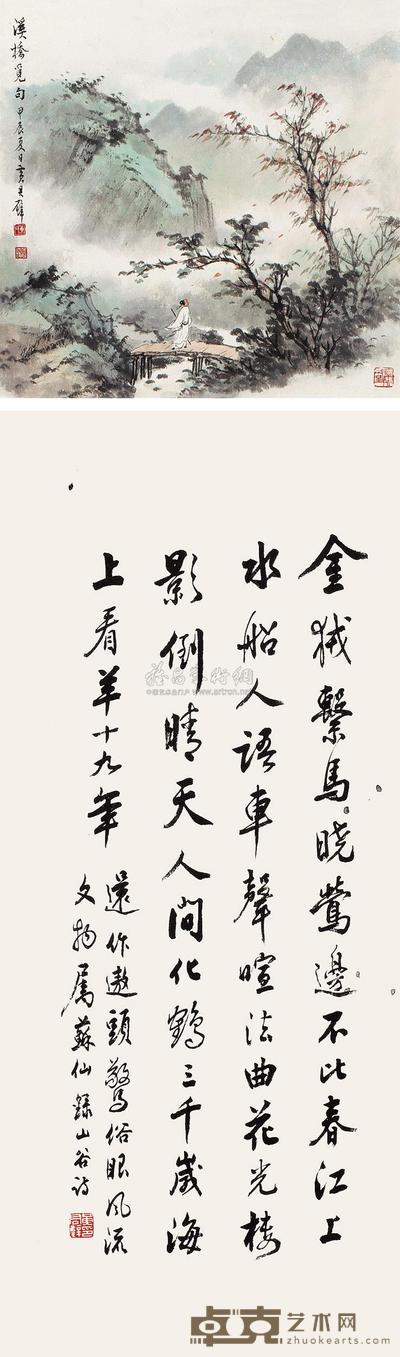 溪橋覓句 甲辰夏日黃君璧
金狨繫馬曉鶯邊不比春江上
水船人語車聲喧法曲花光樓
影倒晴天人間化鶴三千歲海
上看羊十九年
還作遨頭驚俗眼風流
文物屬蘇仙 錄山谷詩
雅昌藝術網
www.artron.net
卓克艺术网
zhuokearts.com